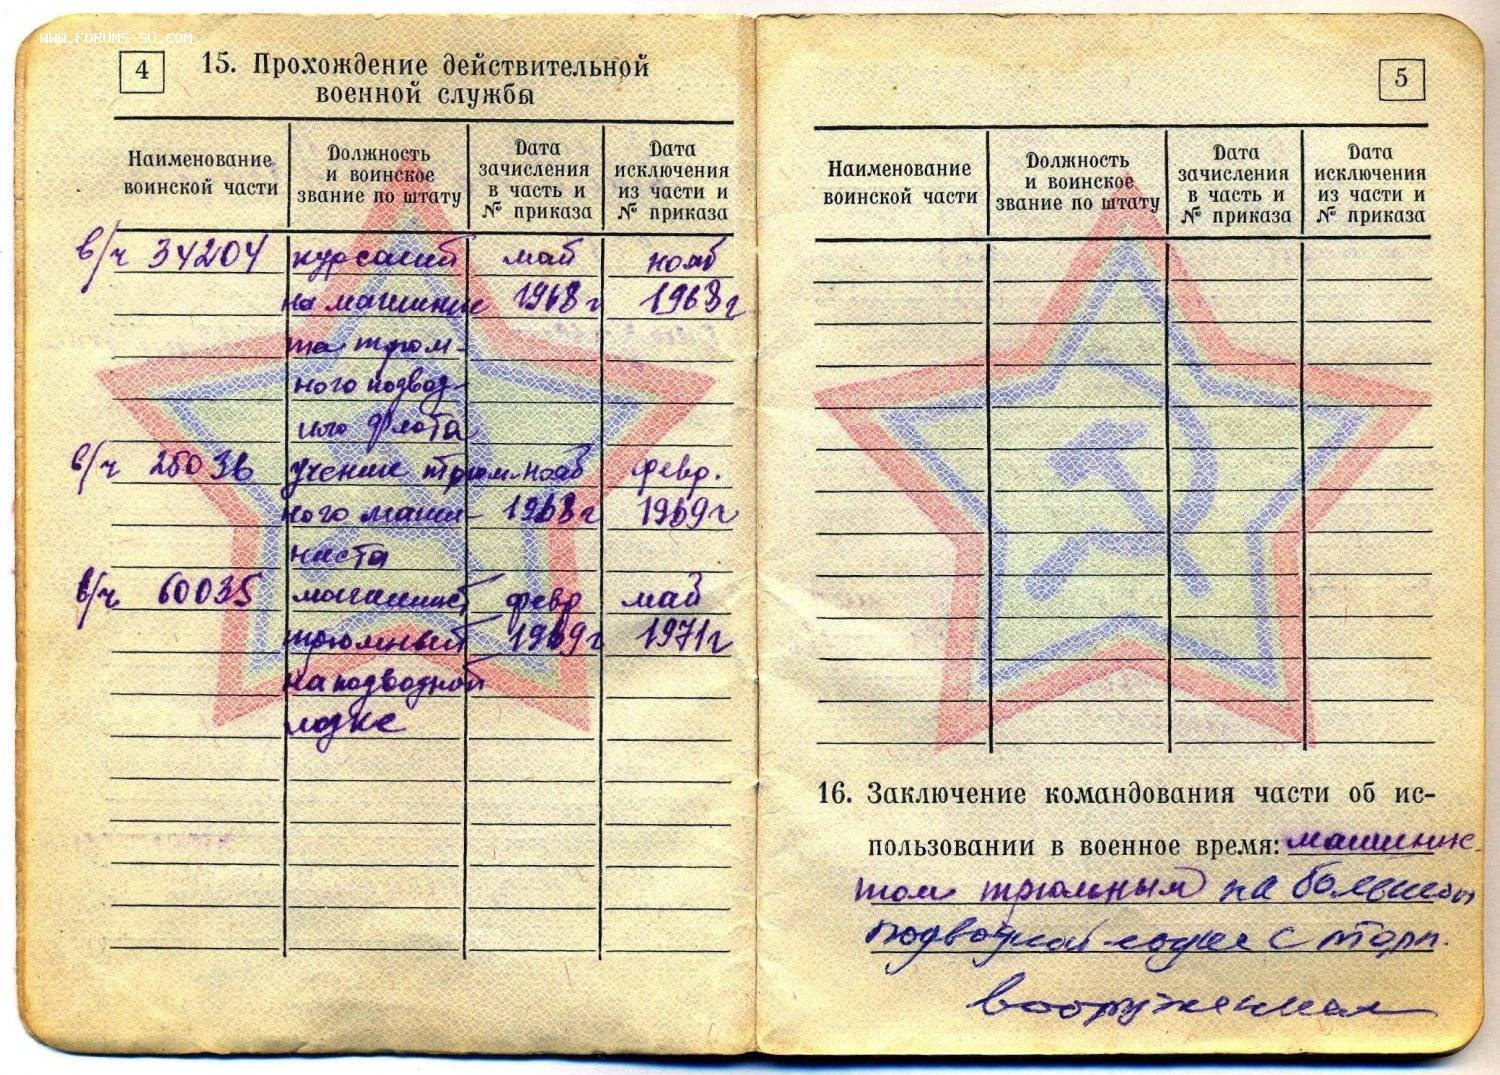 www.forums-su.com
4
15. Прохождение действительной
военной службы
Наименование воинской части
Должность и воинское звание по штату
Дата зачисления в часть и № приказа
Дата исключения из части и № приказа
в/ч 34204 курсант май нояб
на машинис 1968 г 1968 г
та трюм-
ного подвод-
ного флота
в/ч учение трюм- нояб февр.
ного маши- 1968 г 1969 г
ниста
в/ч 60035 машинист февр май
трюмный 1969 г 1971 г
на подводной
лодке
5
Наименование воинской части
Должность и воинское звание по штату
Дата зачисления в часть и № приказа
Дата исключения из части и № приказа
16. Заключение командования части об ис-
пользовании в военное время: машинис-
том трюмным на большой
подводной лодке с торп.
вооружением